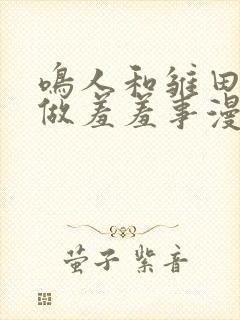 鸣人和雏田
做羞羞事漫
萤子紫音